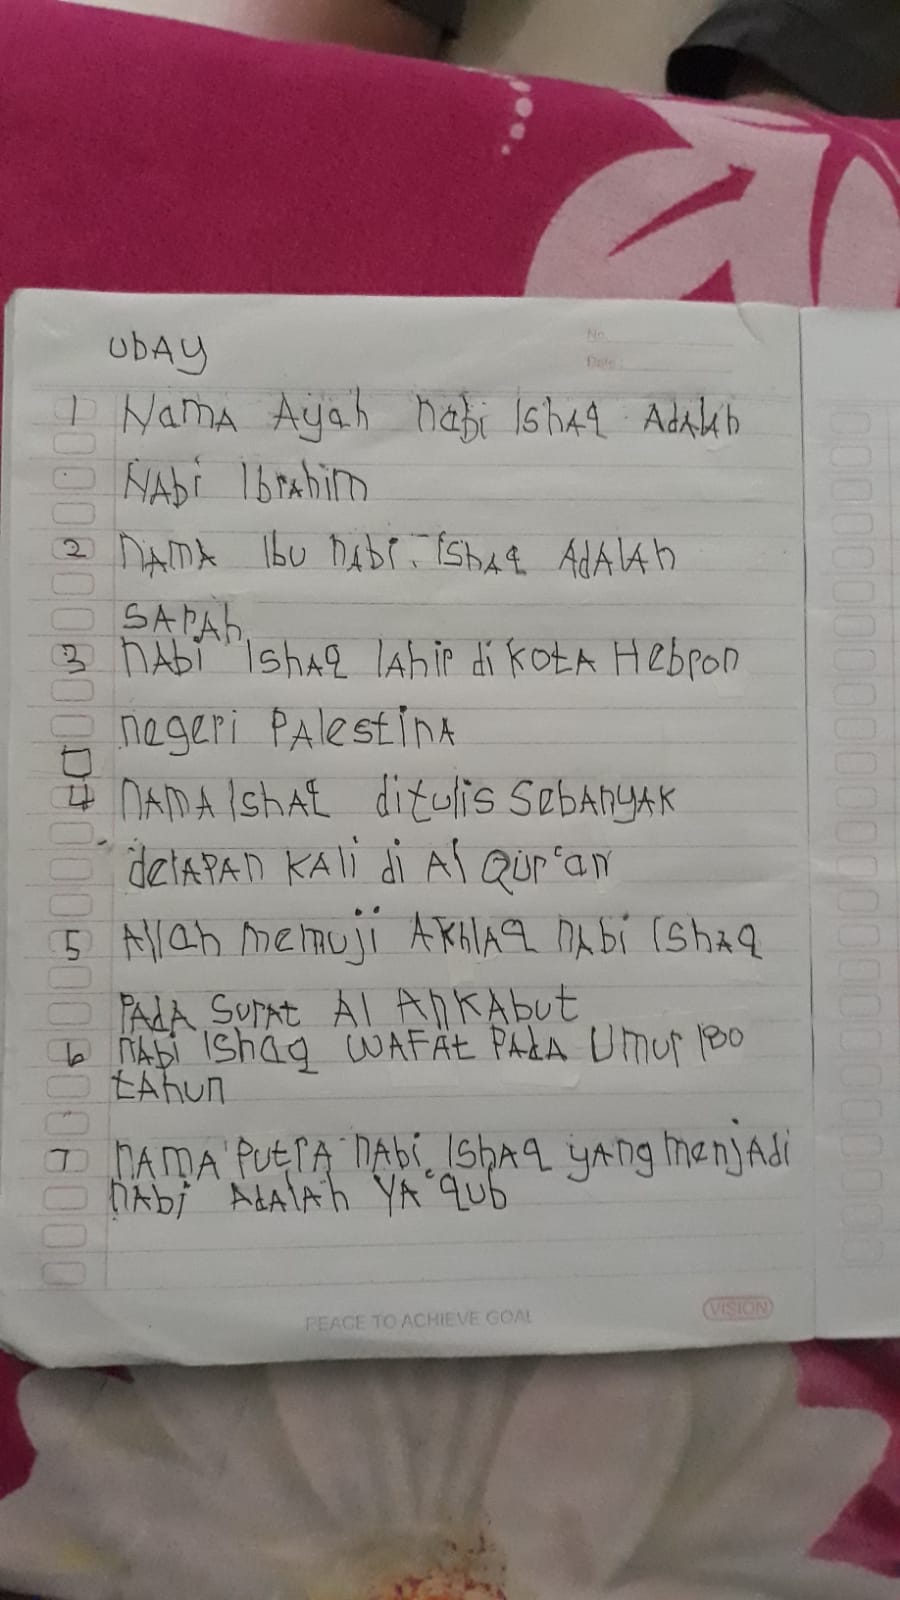 UbAY
No.
Date:
1 NamA Ayah nabi IshAq AdAlAh
NAbi IbrAhim
2 nAmA Ibu nAbi. IshAq AdAlAh
SArAh
3 nAbi IshAq lAhir di KOtA Hebron
negeri PAlestinA
4 nAMA IshAq ditulis SebAnyAK
delAPAn KAli di Al Qur'an
5 Allah memuji AKhlAq nAbi IshAq
PAdA SurAt Al AnKAbut
6 nAbi IShaq WAFAt PAdA Umur 180
tAhun
7 nAMA PutrA nAbi IShAq yAng menjAdi
nAbi AdAlAh YA'qub
PEACE TO ACHIEVE GOAL
VISION